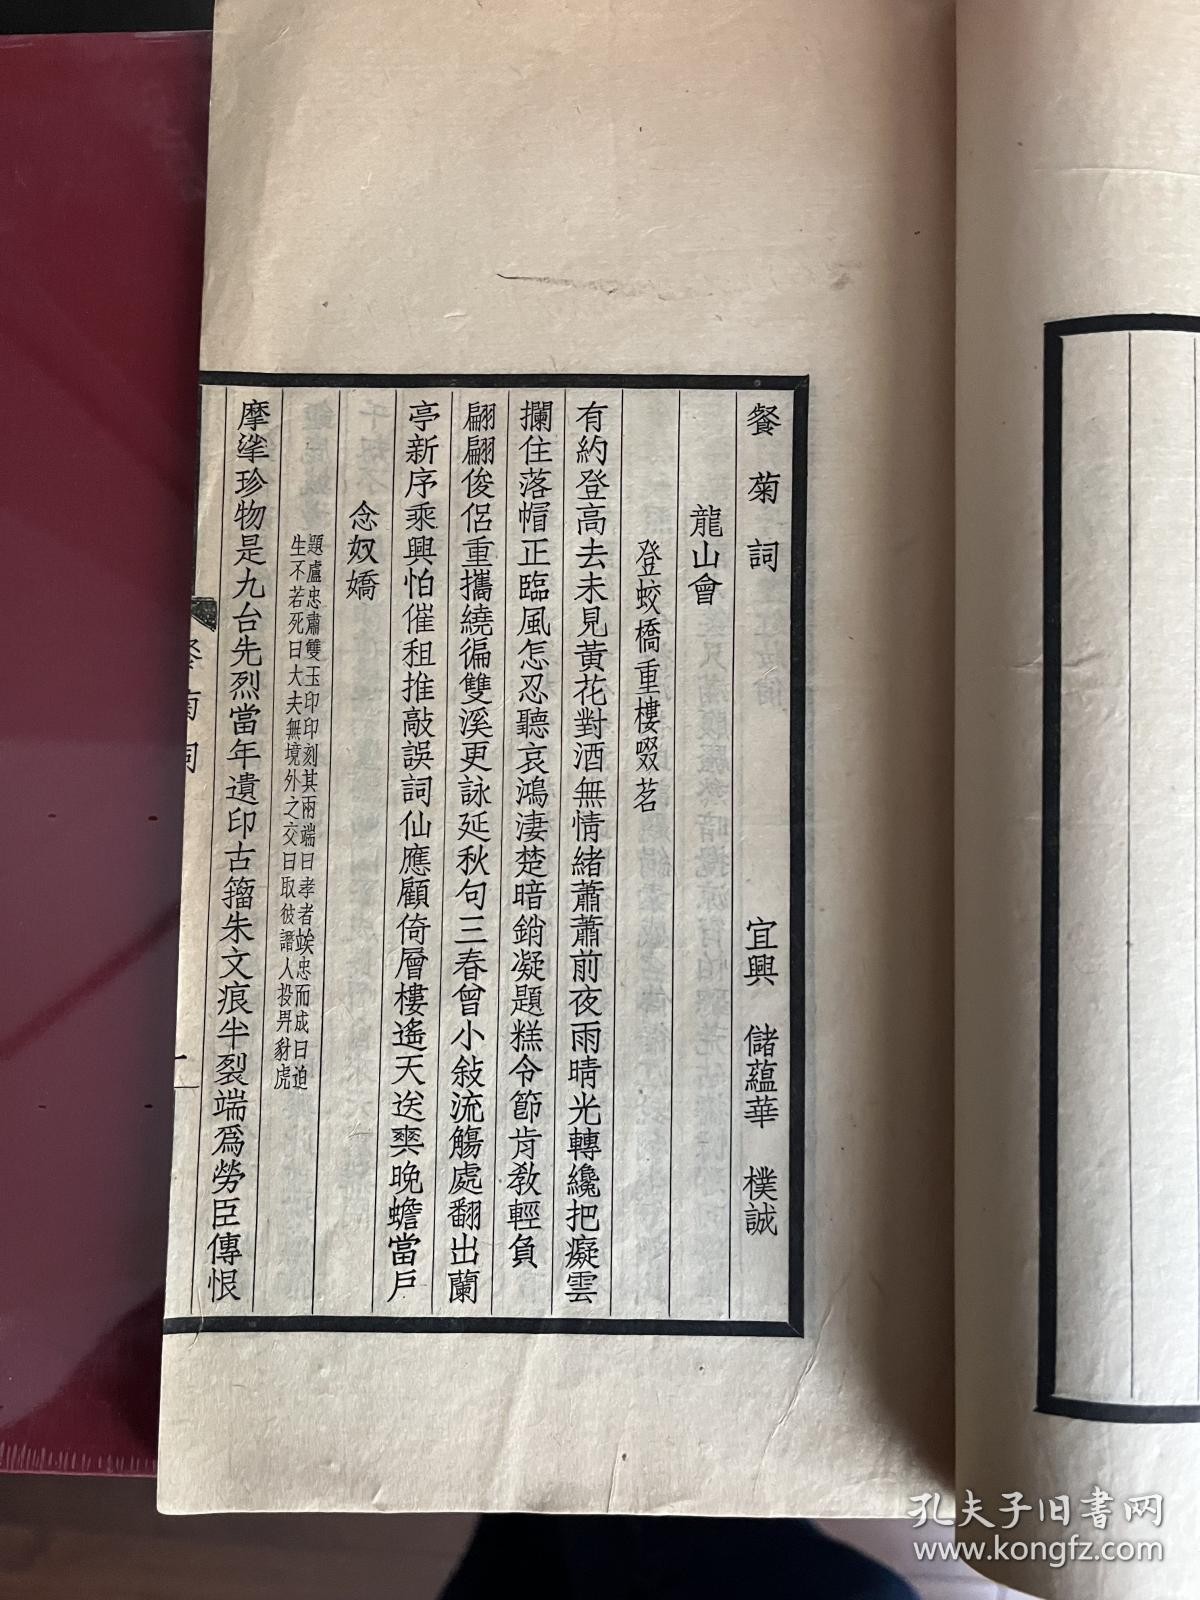 餐菊詞 宜興 儲蘊華 樸誠
龍山會
登蛟橋重樓啜茗
有約登高去未見黃花對酒無情緒蕭蕭前夜雨晴光轉纔把癡雲
攔住落帽正臨風怎忍聽哀鴻淒楚暗銷凝題糕令節肯教輕負
翩翩俊侶重攜繞徧雙溪更詠延秋句三春曾小敍流觴處翻出蘭
亭新序乘興怕催租推敲誤詞仙應顧倚層樓遙天送爽晚蟾當戶
念奴嬌
題盧忠肅雙玉印印刻其兩端曰孝者竢忠而成曰迫
生不若死曰大夫無境外之交曰取彼譖人投畀豺虎
摩挲珍物是九台先烈當年遺印古籀朱文痕半裂端爲勞臣傳恨
餐菊詞
孔夫子旧书网
www.kongfz.com